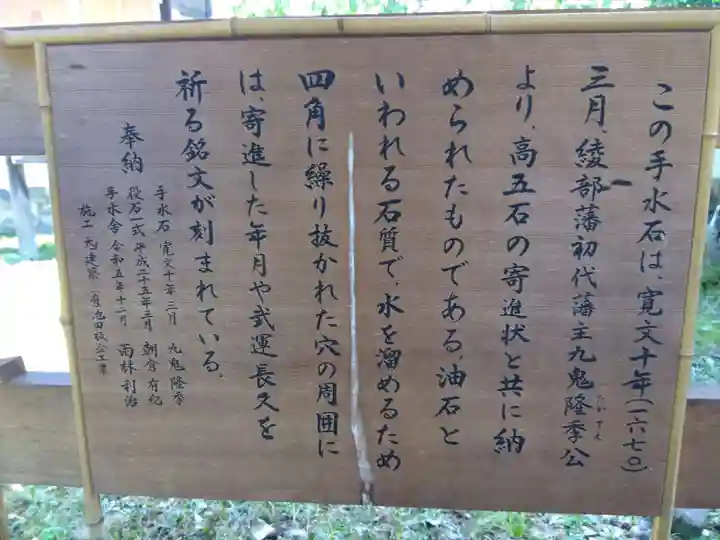 この手水石は、寛文十年(一六七〇)
三月、綾部藩初代藩主九鬼隆季公
たかすえ
より、高五石の寄進状と共に納
められたものである。油石と
いわれる石質で、水を溜めるため
四角に繰り抜かれた穴の周囲に
は、寄進した年月や武運長久を
祈る銘文が刻まれている。
奉納
手水石 寛文十年三月 九鬼隆季
役石一式 平成二十五年三月 朝倉有紀
手水舎 令和五年十二月 雨林利治
施工